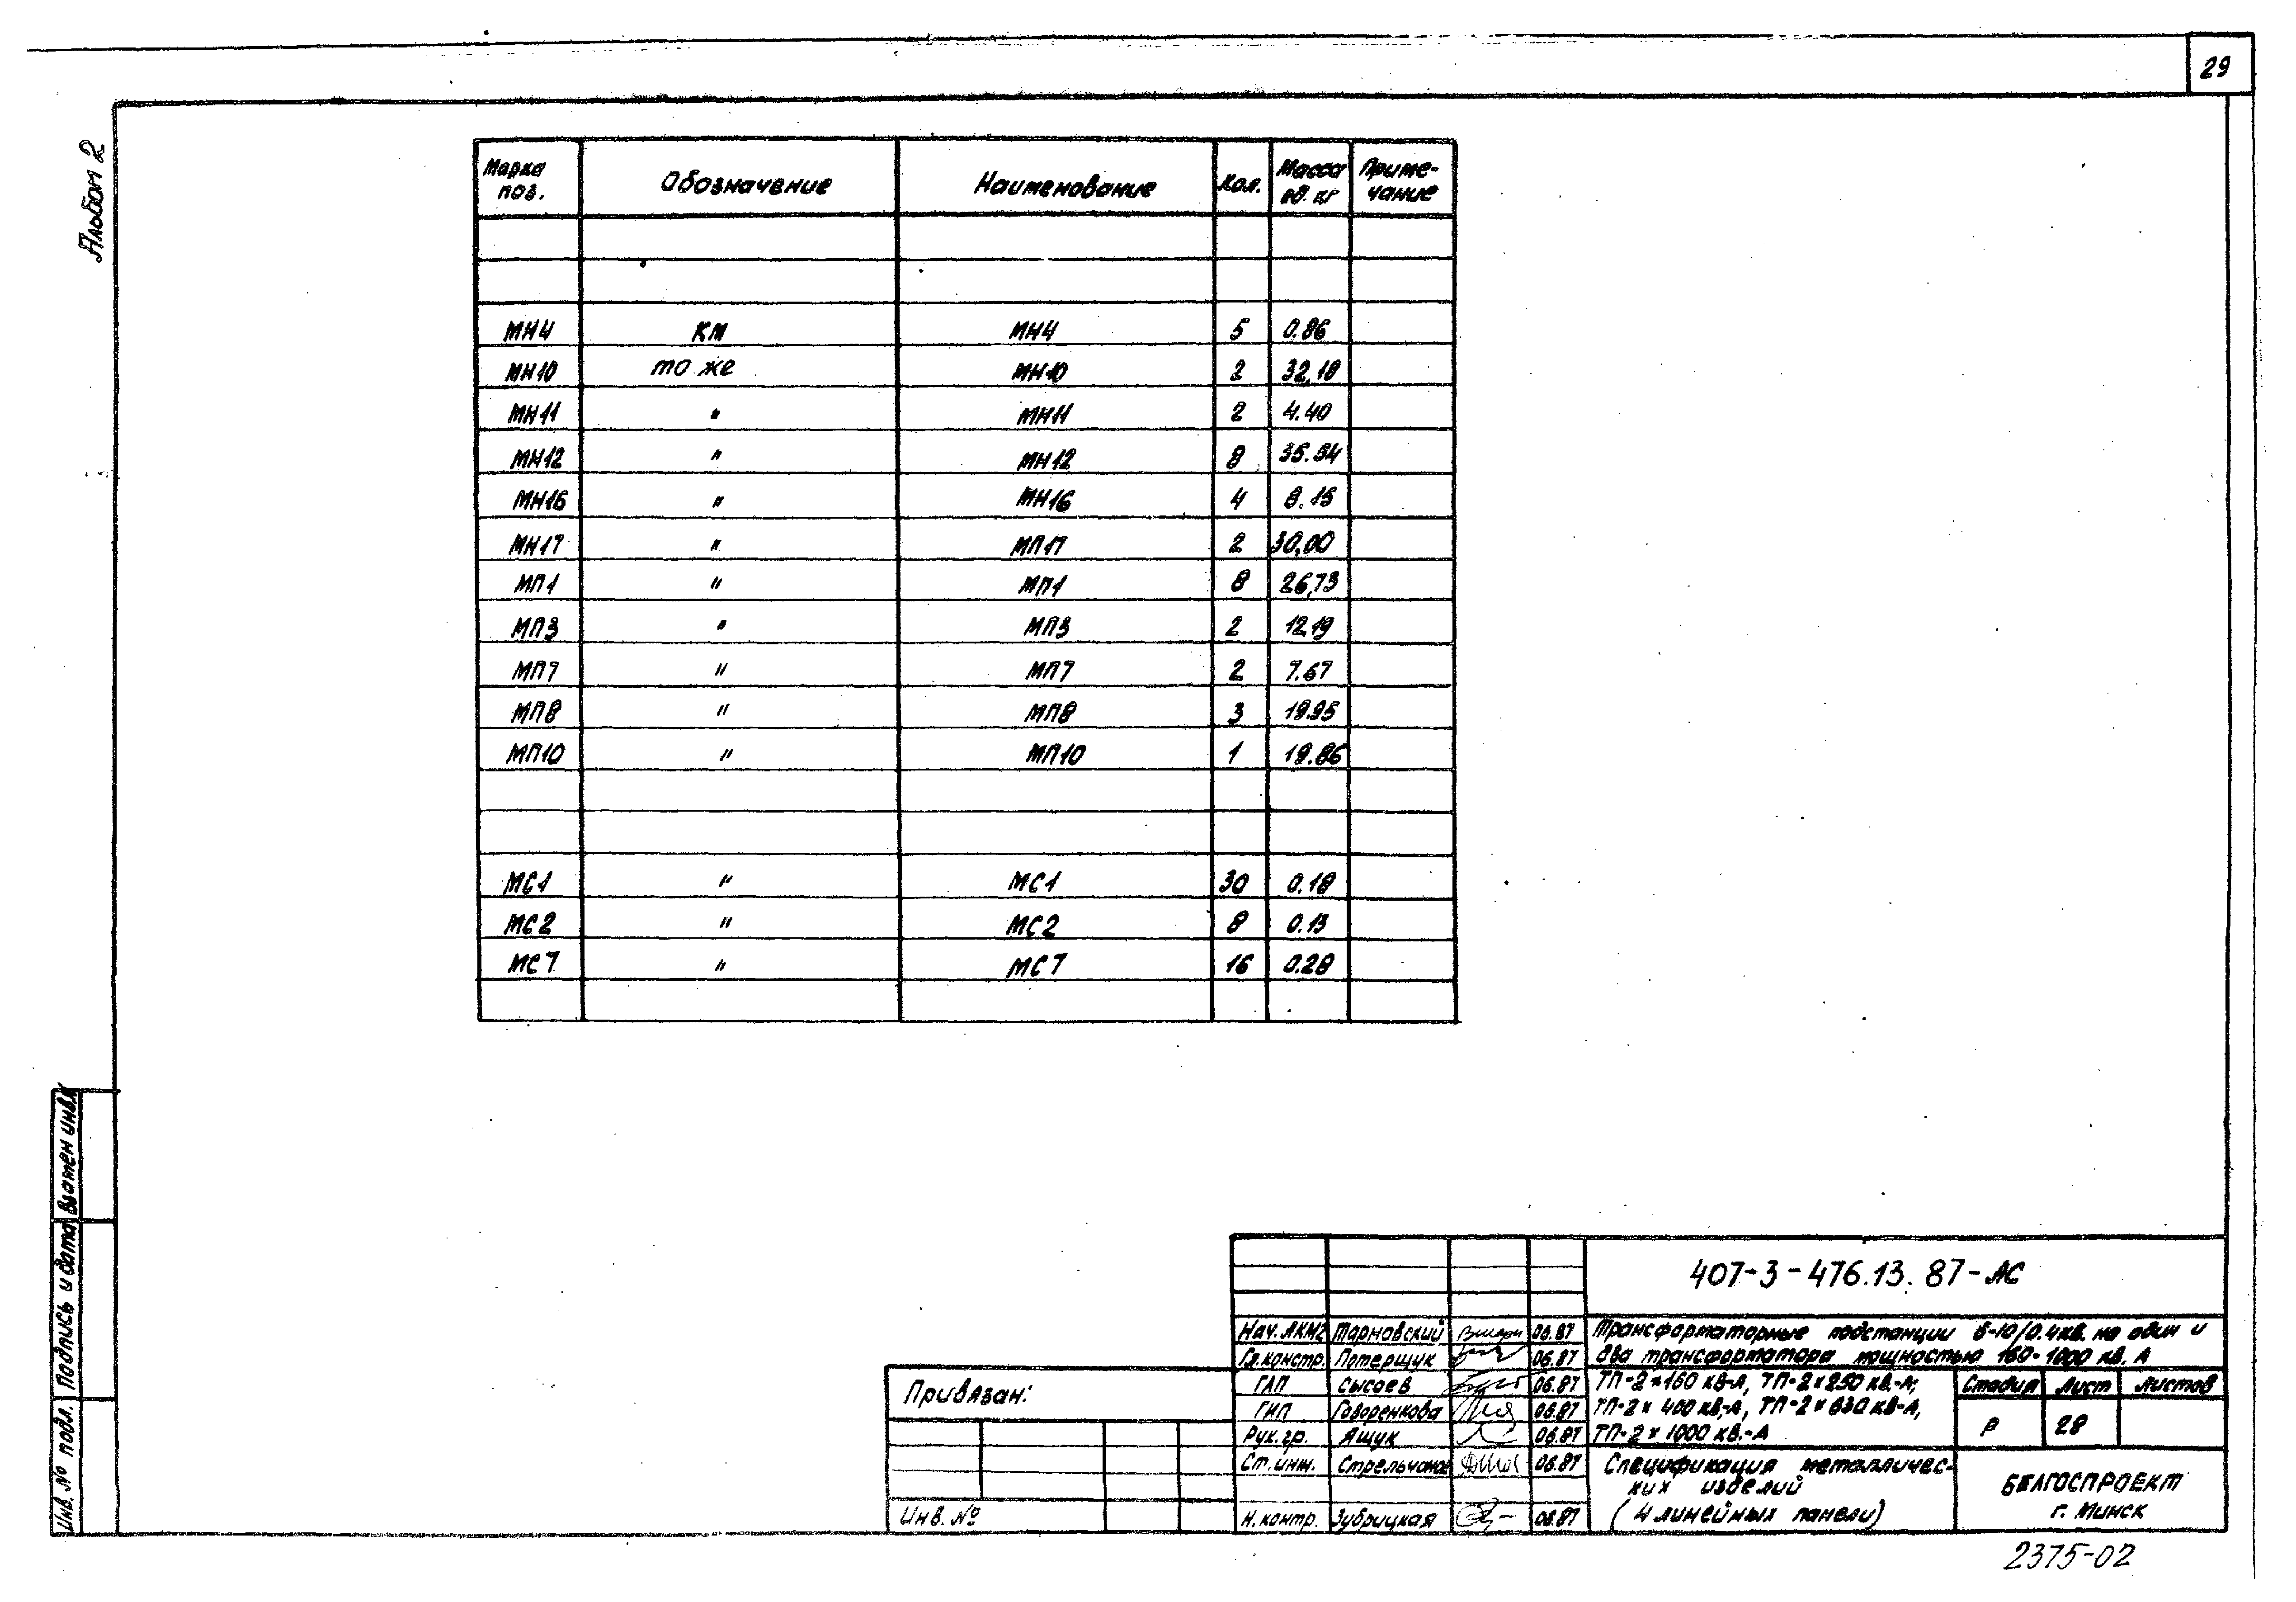 29
Альбом 2
Марка поз. Обозначение Наименование Кол. Масса ед. кг Приме-чание
МН4 КМ МН4 5 0.86
МН10 то же МН10 2 32,18
МН11 " МН11 2 4.40
МН12 " МН12 8 35.54
МН16 " МН16 4 8.15
МН17 " МП17 2 30,00
МП1 " МП1 8 26,73
МП3 " МП3 2 12,19
МП7 " МП7 2 7.67
МП8 " МП8 3 19.95
МП10 " МП10 1 19.86
МС1 " МС1 30 0.18
МС2 " МС2 8 0.13
МС7 " МС7 16 0.28
Взамен инв.№
Подпись и дата
Инв. № подл.
Привязан:
Инв. №
407-3-476.13.87-АС
Нач. АКМ2 Тарновский 06.87
Гл.констр. Потерщук 06.87
ГАП Сысоев 06.87
ГИП Говоренкова 06.87
Рук. гр. Ящук 06.87
Ст. инж. 06.87
Н. контр. Зубрицкая 06.87
Трансформаторные подстанции 6-10/0.4кв. на один и
два трансформатора мощностью 160-1000 кв. А
ТП-2×160 кв-А, ТП-2×250 кв.-А;
ТП-2× 400 кв.-А, ТП-2× 630 кв-А,
ТП-2× 1000 кв.-А
Стадия Лист Листов
Р 28
Спецификация металличес-
ких изделий
(4 линейных панели)
БЕЛГОСПРОЕКТ
г. Минск
2375-02